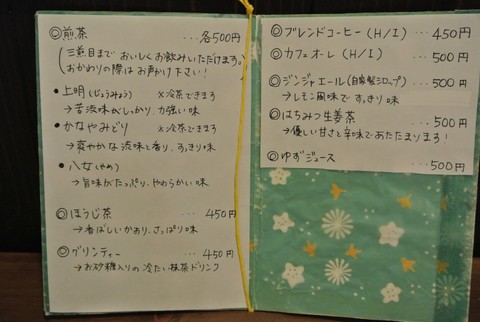 ◎煎茶 ... 各500円
(三煎目まで おいしくお飲みいただけます。
おかわりの際は お声かけ下さい!)
・上明(じょうみょう) ※冷茶できます
→苦渋味がしっかり、力強い味
・かなやみどり ※冷茶できます
→爽やかな渋味と香り、すっきり味
・八女(やめ)
→旨味がたっぷり、やわらかい味
◎ほうじ茶 ... 450円
→香ばしいかおり、さっぱり味
◎グリンティー ... 450円
→お砂糖入りの冷たい抹茶ドリンク
◎ブレンドコーヒー(H/I) ... 450円
◎カフェオーレ(H/I) ... 500円
◎ジンジャエール(自家製シロップ) ... 500円
→レモン風味で すっきり味
◎はちみつ生姜茶 ... 500円
→優しい甘さと辛味であたたまります!
◎ゆずジュース ... 500円